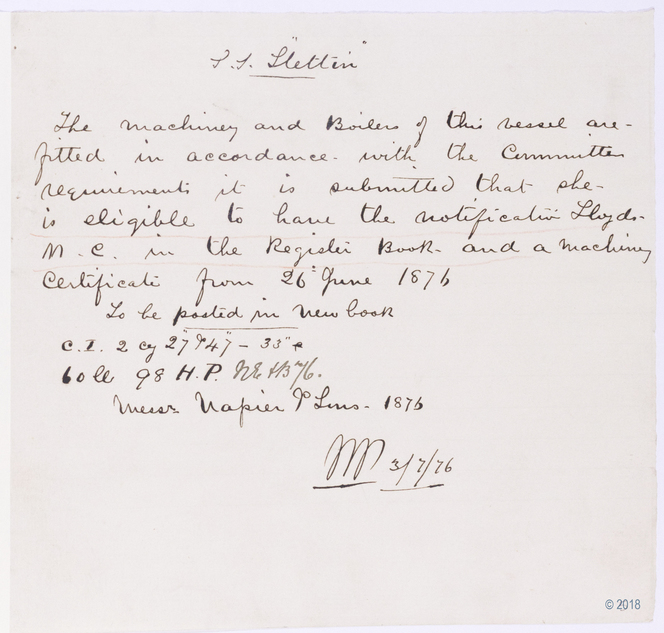 S.S. "Stettin"
The machinery and Boilers of this vessel are
fitted in accordance with the Committees
requirements it is submitted that she
is eligible to have the notification Lloyds
M.C. in the Register Book and a machinery
Certificate from 26 June 1876
To be posted in New book
C.I. 2 cy 27" & 47" - 33"
60 lb 98 H.P. NE&B76.
Messrs Napier & Sons - 1876
3/7/76
© 2018